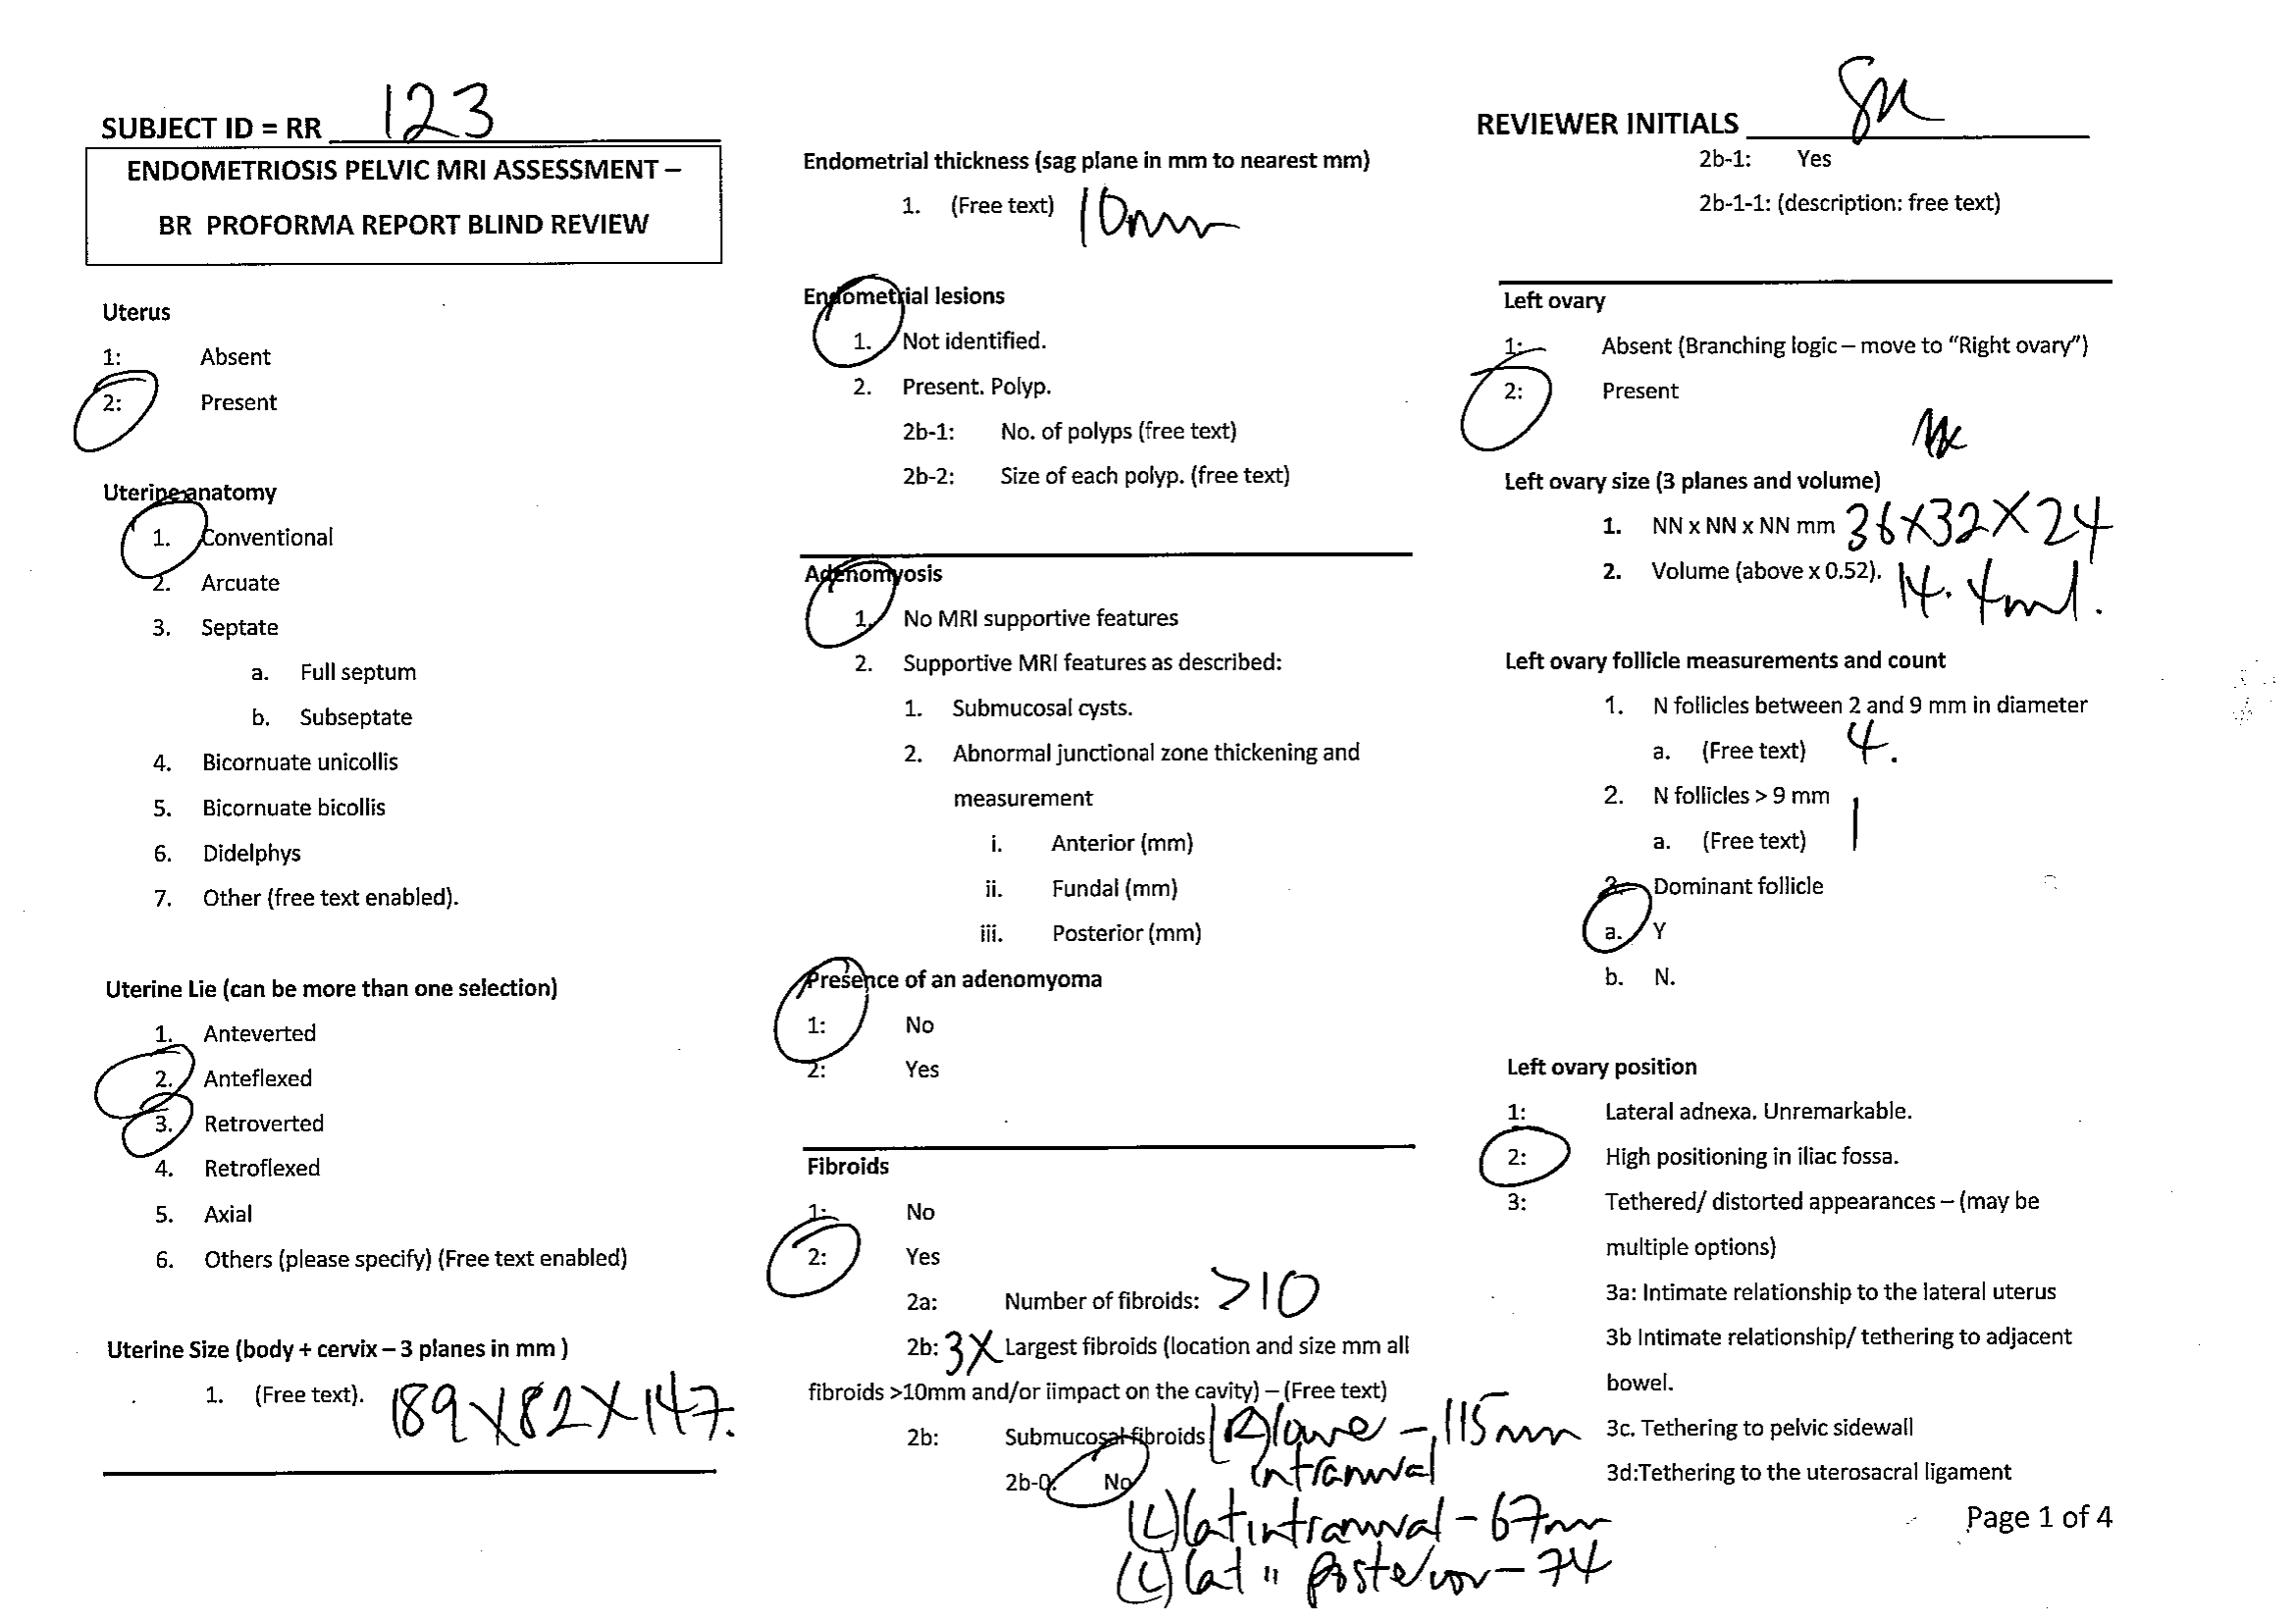 SUBJECT ID = RR 123
ENDOMETRIOSIS PELVIC MRI ASSESSMENT –
BR PROFORMA REPORT BLIND REVIEW
Uterus
1: Absent
2: Present
Uterine anatomy
1. Conventional
2. Arcuate
3. Septate
a. Full septum
b. Subseptate
4. Bicornuate unicollis
5. Bicornuate bicollis
6. Didelphys
7. Other (free text enabled).
Uterine Lie (can be more than one selection)
1. Anteverted
2. Anteflexed
3. Retroverted
4. Retroflexed
5. Axial
6. Others (please specify) (Free text enabled)
Uterine Size (body + cervix – 3 planes in mm )
1. (Free text). 189X82X147.
Endometrial thickness (sag plane in mm to nearest mm)
1. (Free text) 10mm
Endometrial lesions
1. Not identified.
2. Present. Polyp.
2b-1: No. of polyps (free text)
2b-2: Size of each polyp. (free text)
Adenomyosis
1. No MRI supportive features
2. Supportive MRI features as described:
1. Submucosal cysts.
2. Abnormal junctional zone thickening and
measurement
i. Anterior (mm)
ii. Fundal (mm)
iii. Posterior (mm)
Presence of an adenomyoma
1: No
2: Yes
Fibroids
1: No
2: Yes
2a: Number of fibroids: >10
2b: 3X Largest fibroids (location and size mm all
fibroids >10mm and/or iimpact on the cavity) – (Free text)
2b: Submucosal fibroids (R) – 115mm
intramural
2b-0: No
(L) lat intramural – 67mm
(L) lat " posterior – 74
REVIEWER INITIALS
2b-1: Yes
2b-1-1: (description: free text)
Left ovary
1: Absent (Branching logic – move to “Right ovary”)
2: Present
Left ovary size (3 planes and volume)
1. NN x NN x NN mm 36X32X24
2. Volume (above x 0.52). 14.4ml.
Left ovary follicle measurements and count
1. N follicles between 2 and 9 mm in diameter
a. (Free text) 4.
2. N follicles > 9 mm
a. (Free text) 1
3. Dominant follicle
a. Y
b. N.
Left ovary position
1: Lateral adnexa. Unremarkable.
2: High positioning in iliac fossa.
3: Tethered/ distorted appearances – (may be
multiple options)
3a: Intimate relationship to the lateral uterus
3b Intimate relationship/ tethering to adjacent
bowel.
3c. Tethering to pelvic sidewall
3d:Tethering to the uterosacral ligament
Page 1 of 4